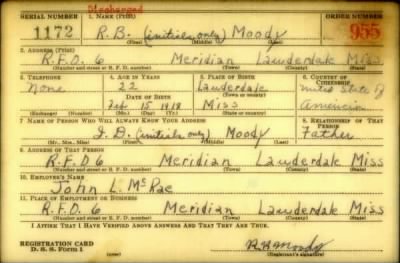 Discharged
SERIAL NUMBER 1. NAME (Print) ORDER NUMBER
1172 R.B. (initials only) Moody 955
(First) (Middle) (Last)
2. ADDRESS (Print)
R.F.D. 6 Meridian Lauderdale Miss
(Number and street or R. F. D. number) (Town) (County) (State)
3. TELEPHONE 4. AGE IN YEARS 5. PLACE OF BIRTH 6. COUNTRY OF CITIZENSHIP
None 22 Lauderdale United State of
DATE OF BIRTH (Town or county)
Feb 15 1918 Miss America
(Exchange) (Number) (Mo.) (Day) (Yr.) (State or country)
7. NAME OF PERSON WHO WILL ALWAYS KNOW YOUR ADDRESS 8. RELATIONSHIP OF THAT PERSON
I. D. (initials only) Moody Father
(Mr., Mrs., Miss) (First) (Middle) (Last)
9. ADDRESS OF THAT PERSON
R.F.D 6 Meridian Lauderdale Miss
(Number and street or R. F. D. number) (Town) (County) (State)
10. EMPLOYER'S NAME
John L. McRae
11. PLACE OF EMPLOYMENT OR BUSINESS
R.F.D. 6 Meridian Lauderdale Miss
(Number and street or R. F. D. number) (Town) (County) (State)
I AFFIRM THAT I HAVE VERIFIED ABOVE ANSWERS AND THAT THEY ARE TRUE.
REGISTRATION CARD
D. S. S. Form 1 (over) R B Moody
(Registrant's signature)